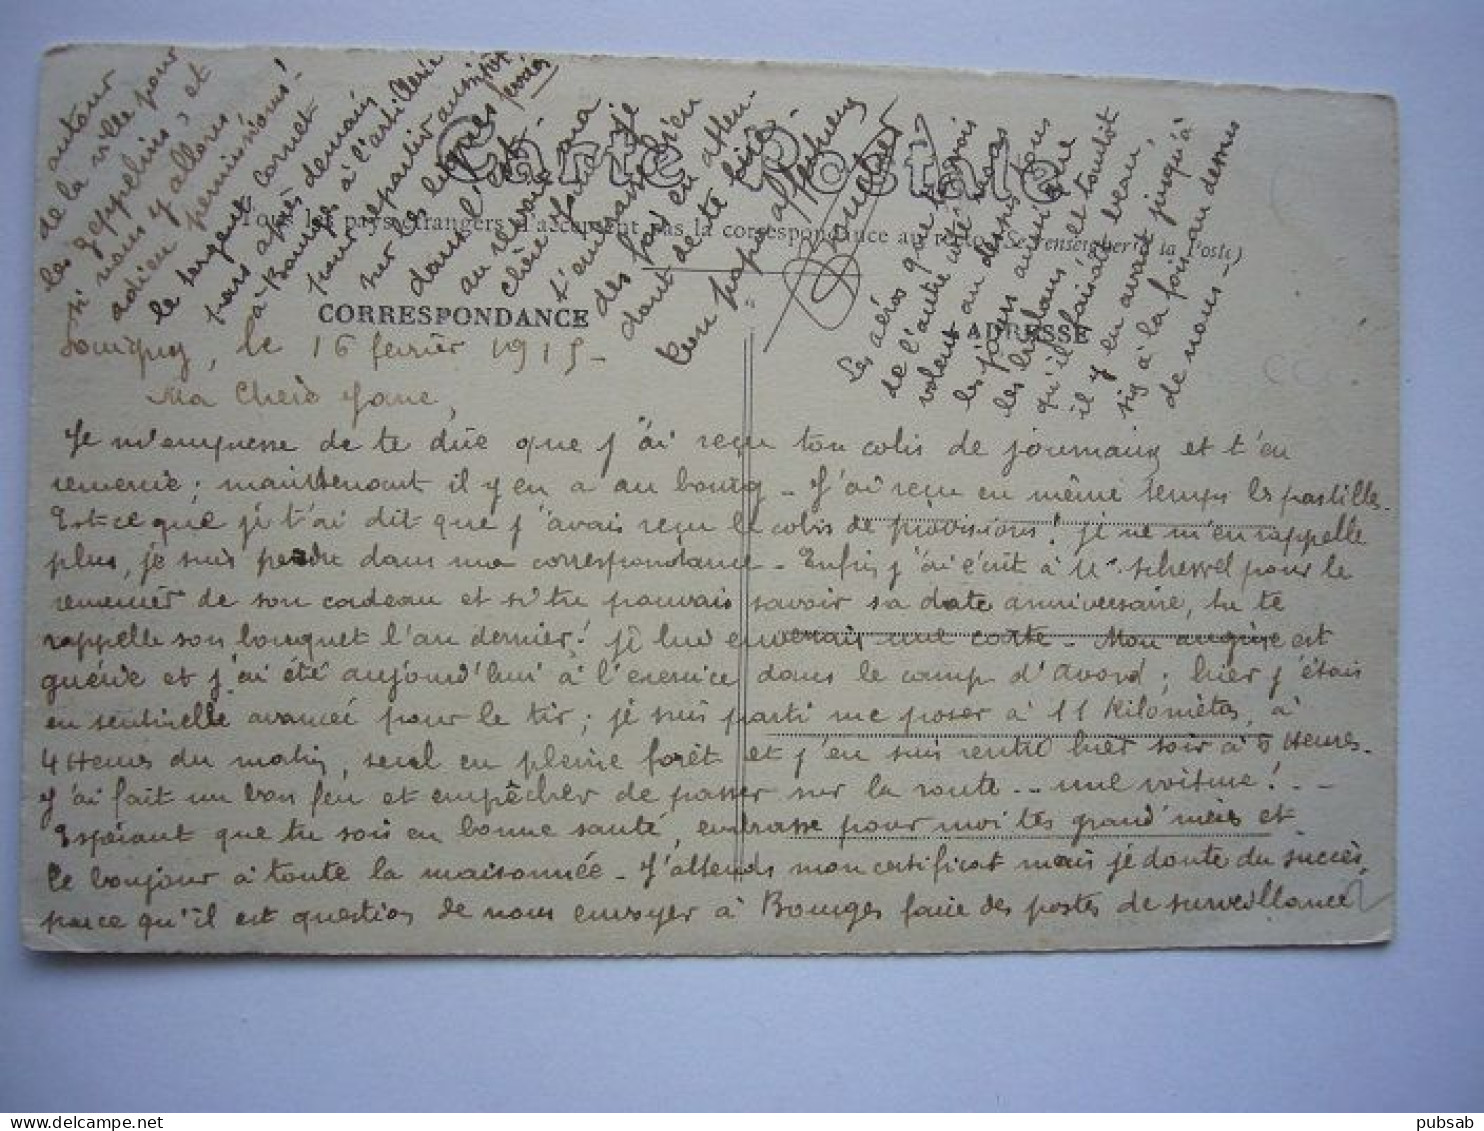 Carte Postale
Tous les pays étrangers n'acceptent pas la correspondance au recto (Se renseigner à la Poste)
CORRESPONDANCE
ADRESSE
le 16 février 1915 -
Ma Chère Jane,
Je m'empresse de te dire que j'ai reçu ton colis de journaux et t'en
remercie ; maintenant il y en a au bourg - J'ai reçu en même temps les pastilles.
Est-ce que je t'ai dit que j'avais reçu le colis de provisions ! je ne m'en rappelle
plus, je suis perdu dans ma correspondance - Enfin j'ai écrit à pour le
remercier de son cadeau et si tu pouvais savoir sa date anniversaire, tu te
rappelle son bouquet l'an dernier ! je lui enverrais une carte - Mon angine est
guérie et j'ai été aujourd'hui à l'exercice dans le camp d'Avord ; hier j'étais
en sentinelle avancée pour le tir ; je suis parti me poser à 11 kilomètres, à
4 Heures du matin, seul en pleine forêt et j'en suis rentré hier soir à 5 Heures.
J'ai fait un bon feu et empêcher de passer sur la route .. une voiture ! . -
Espérant que tu sois en bonne santé, embrasse pour moi tes grand'mères et
le bonjour à toute la maisonnée - J'attends mon certificat mais je doute du succès
parce qu'il est question de nous envoyer à Bourges faire des postes de surveillance
autour
de la ville pour
les zeppelins, et
si nous y allons
adieu permissions !
le sergent Cornet
part après demain
à Bourges à l'artillerie
pour repartir aussitôt
sur les lignes
dans l'Est -
au revoir ma
chère Jane je
t'embrasse bien
des fois en atten-
dant de te lire -
Ton papa affectueux
Les aéros que tu vois
de l'autre côté nous
volent au dessus tous
les jours aussi que
les biplans, et tantôt
qu'il faisait beau,
il y en avait jusqu'à
six à la fois au dessus
de nous -
pubsab